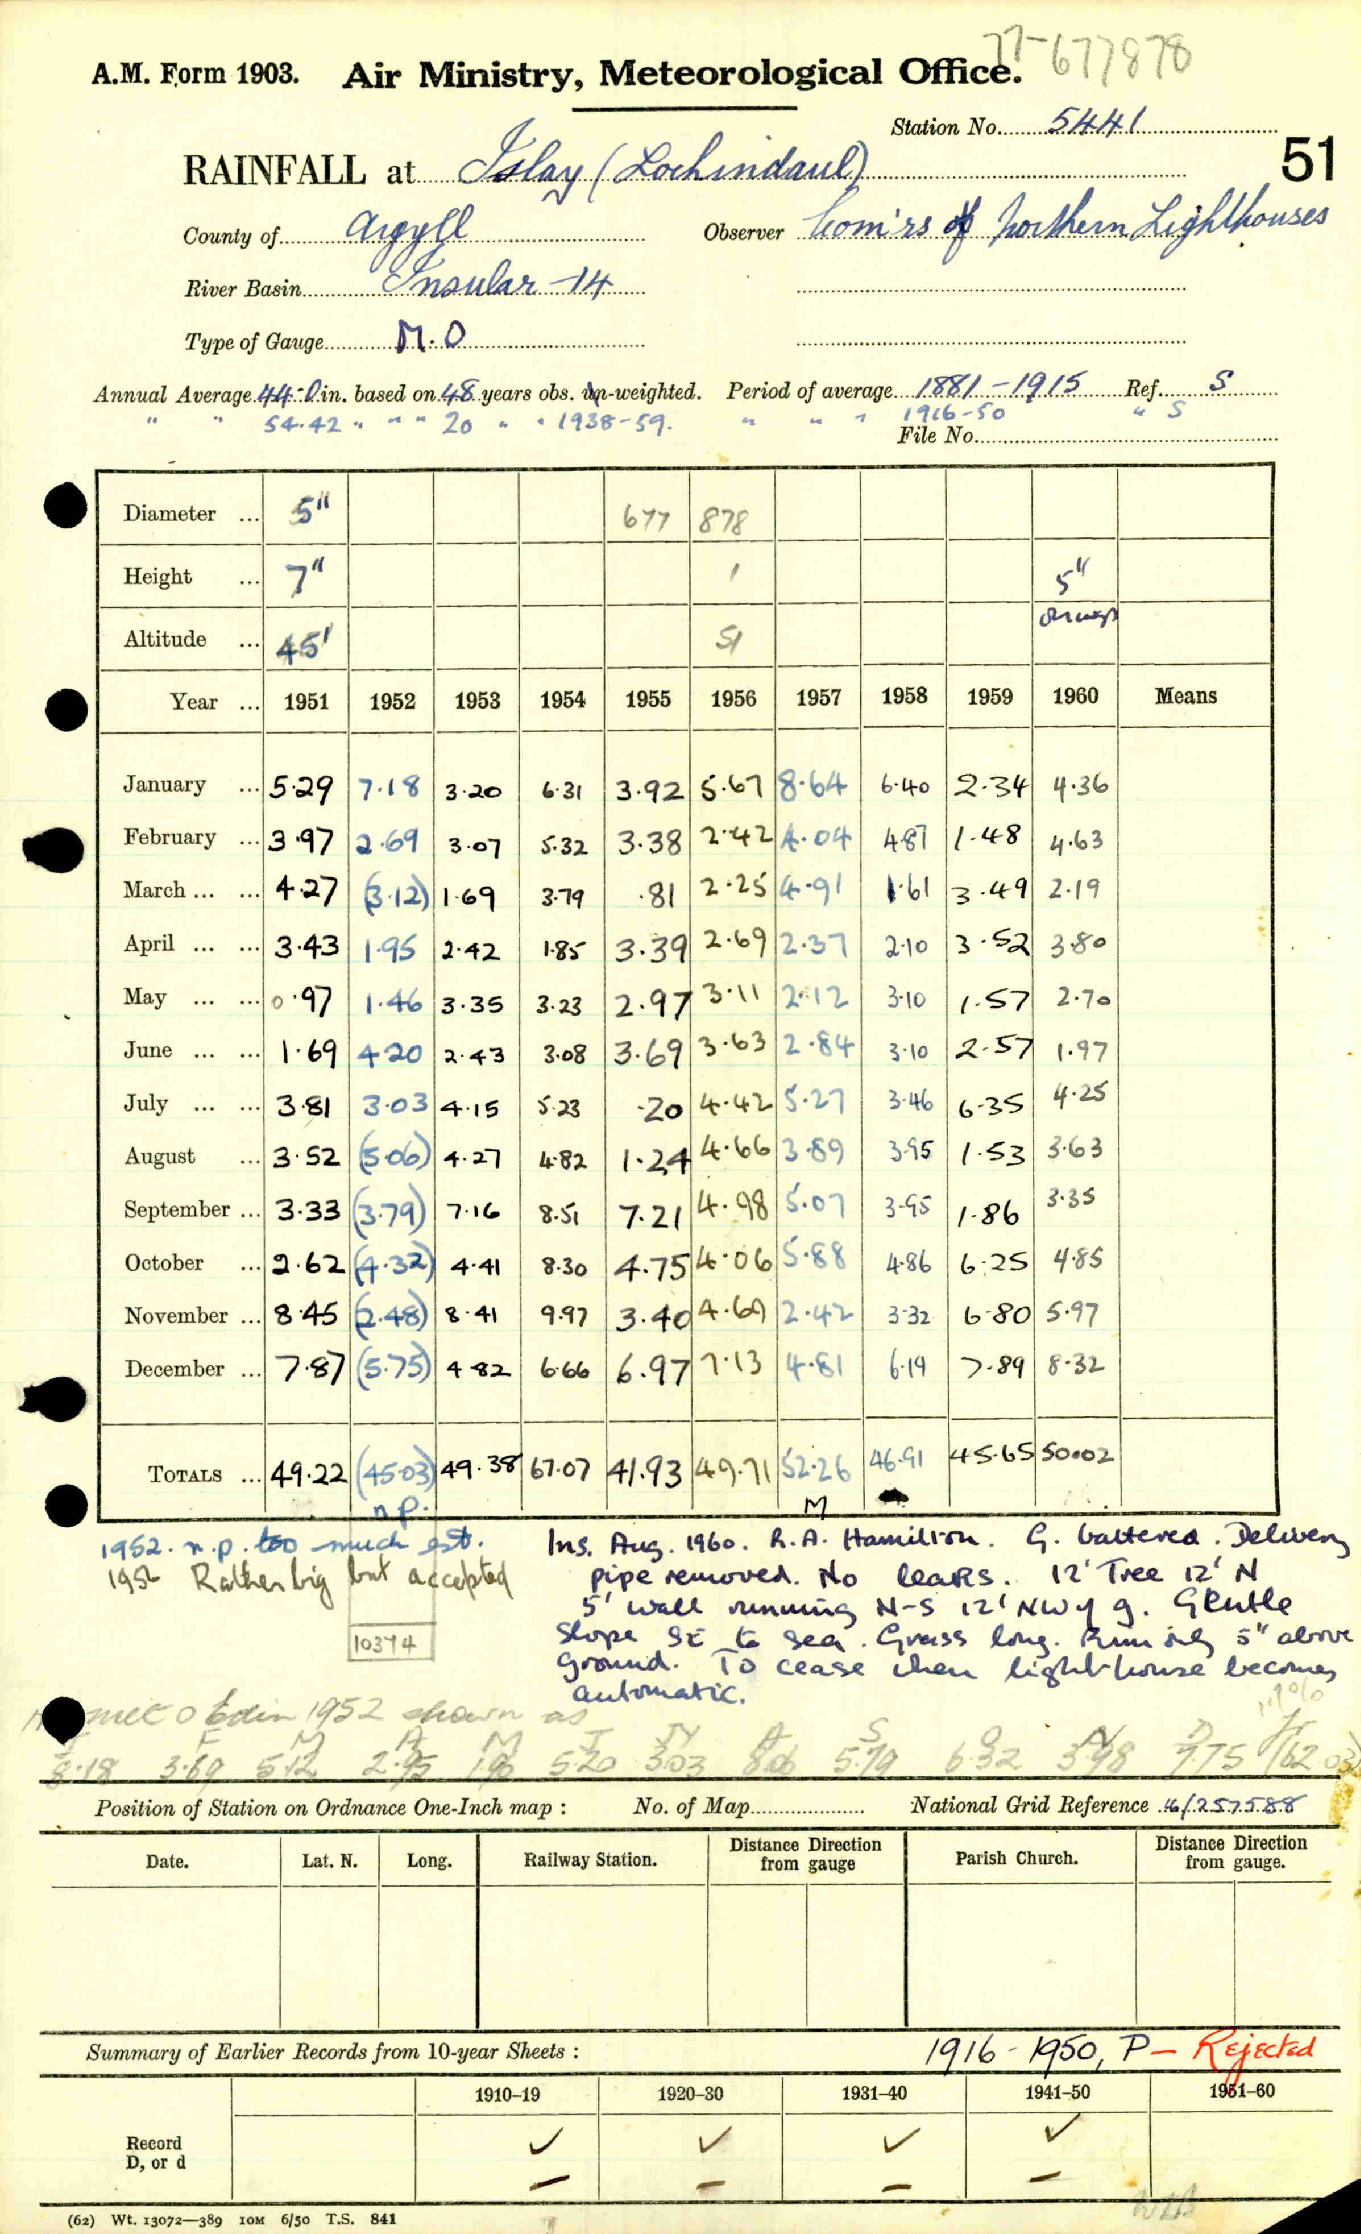 77-677878
A.M. Form 1903. Air Ministry, Meteorological Office.
Station No. 5441
51
RAINFALL at Islay (Lochindaul)
County of Argyll Observer Com'rs of Northern Lighthouses
River Basin Insular - 14
Type of Gauge M.O
Annual Average 44.0 in. based on 48 years obs. un-weighted. Period of average 1881-1915 Ref. S
" " 54.42 " " " 20 " " 1938-59. " " " 1916-50 " S
File No.
Diameter ... 5" 677 878
Height ... 7" 1 5"
Altitude ... 45' 51
Year ... 1951 1952 1953 1954 1955 1956 1957 1958 1959 1960 Means
January ... 5.29 7.18 3.20 6.31 3.92 5.67 8.64 6.40 2.34 4.36
February ... 3.97 2.69 3.07 5.32 3.38 2.42 4.04 4.87 1.48 4.63
March ... ... 4.27 (3.12) 1.69 3.79 .81 2.25 4.91 1.61 3.49 2.19
April ... ... 3.43 1.95 2.42 1.85 3.39 2.69 2.37 2.10 3.52 3.80
May ... ... 0.97 1.46 3.35 3.23 2.97 3.11 2.12 3.10 1.57 2.70
June ... ... 1.69 4.20 2.43 3.08 3.69 3.63 2.84 3.10 2.57 1.97
July ... ... 3.81 3.03 4.15 5.23 .20 4.42 5.27 3.46 6.35 4.25
August ... 3.52 (5.06) 4.27 4.82 1.24 4.66 3.89 3.95 1.53 3.63
September ... 3.33 (3.79) 7.16 8.51 7.21 4.98 5.07 3.95 1.86 3.35
October ... 2.62 (4.32) 4.41 8.30 4.75 4.06 5.88 4.86 6.25 4.85
November ... 8.45 (2.48) 8.41 9.97 3.40 4.69 2.42 3.32 6.80 5.97
December ... 7.87 (5.75) 4.82 6.66 6.97 7.13 4.81 6.19 7.89 8.32
TOTALS ... 49.22 (45.03) 49.38 67.07 41.93 49.71 52.26 46.91 45.65 50.02
n.p. M
1952. n.p. too much est.
195 Rather big but accepted
10374
Ins. Aug. 1960. R.A. Hamilton. G. battered. Delivery
pipe removed. No leaks. 12' Tree 12' N
5' wall running N-S 12' NW of g. Gentle
slope SE to sea. Grass long. Rim only 5" above
ground. To cease when lighthouse becomes
automatic.
Met O Edin 1952 shown as
J F M A M J JY A S O N D
8.18 3.69 5.12 2.95 1.96 5.20 3.03 8.06 5.79 6.32 3.98 7.75 (62.03)
Position of Station on Ordnance One-Inch map : No. of Map National Grid Reference 16/257588
Date. Lat. N. Long. Railway Station. Distance Direction from gauge Parish Church. Distance Direction from gauge.
Summary of Earlier Records from 10-year Sheets : 1916 - 1950, P - Rejected
1910-19 1920-30 1931-40 1941-50 1951-60
Record ✓ ✓ ✓ ✓
D, or d - - - -
(62) Wt. 13072—389 10M 6/50 T.S. 841